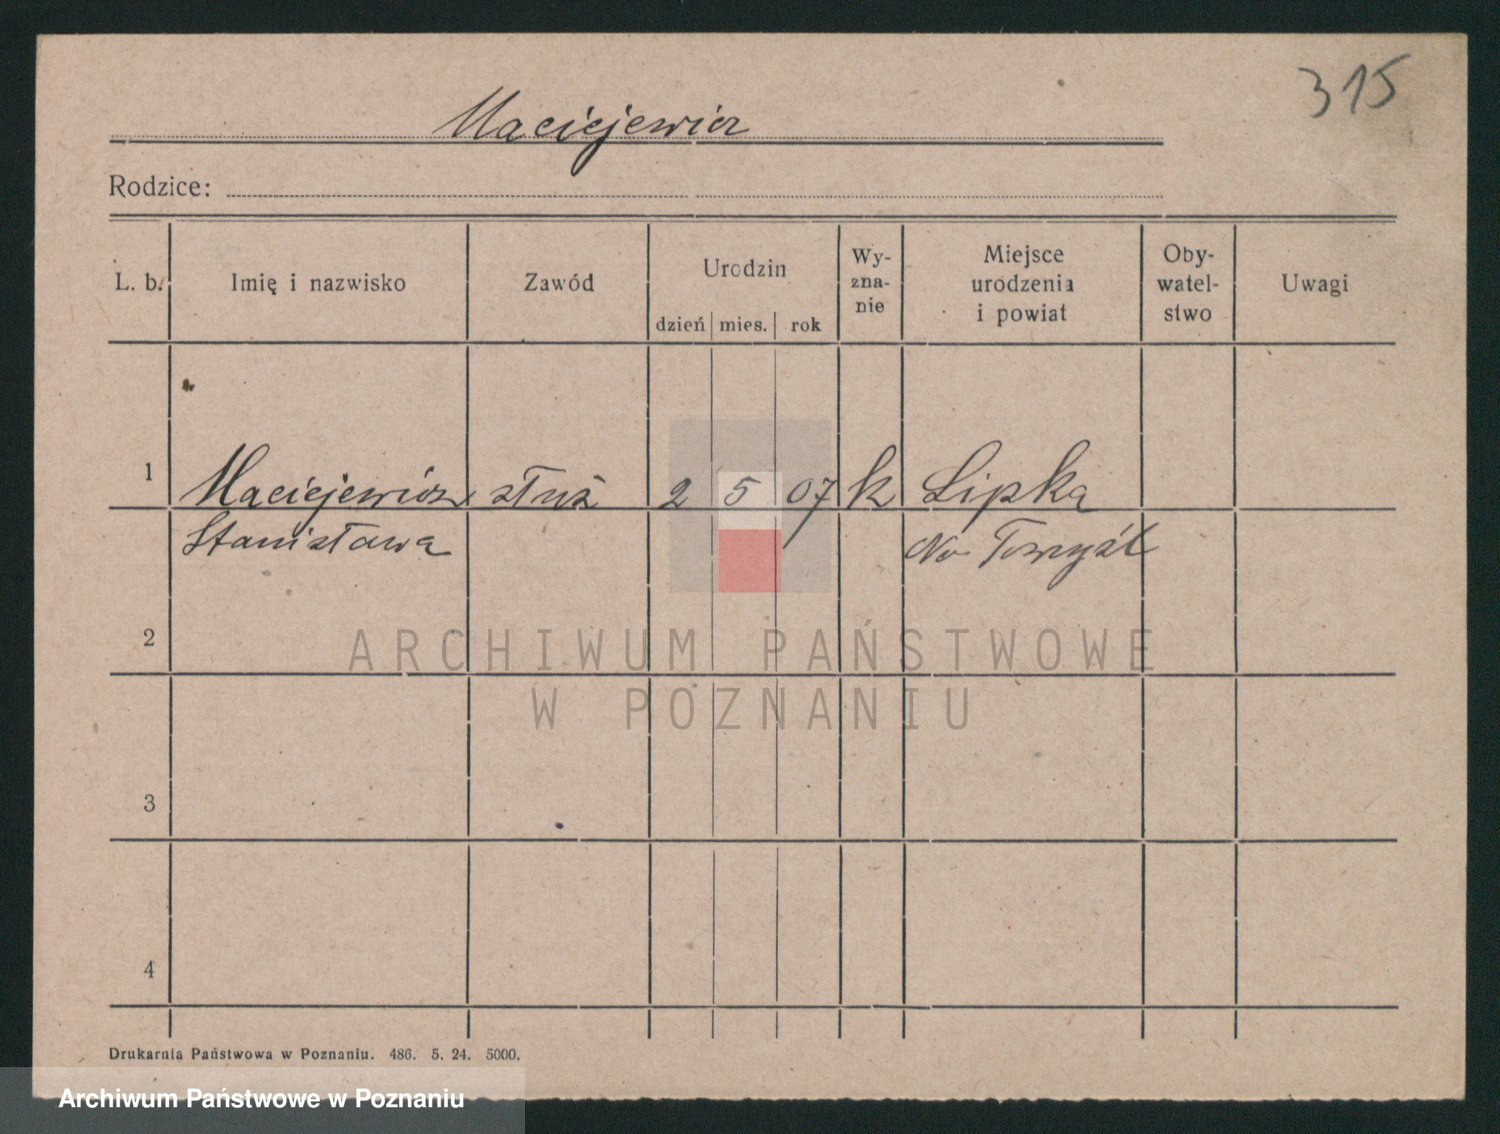 315
Maciejewicz
Rodzice:
L. b. Imię i nazwisko Zawód Urodzin dzień mies. rok Wyznanie Miejsce urodzenia i powiat Obywatelstwo Uwagi
1 Maciejewicz służ 2 5 07 k Lipka
Stanisława No Tomyśl
2
ARCHIWUM PAŃSTWOWE
W POZNANIU
3
4
Drukarnia Państwowa w Poznaniu. 486. 5. 24. 5000.
Archiwum Państwowe w Poznaniu